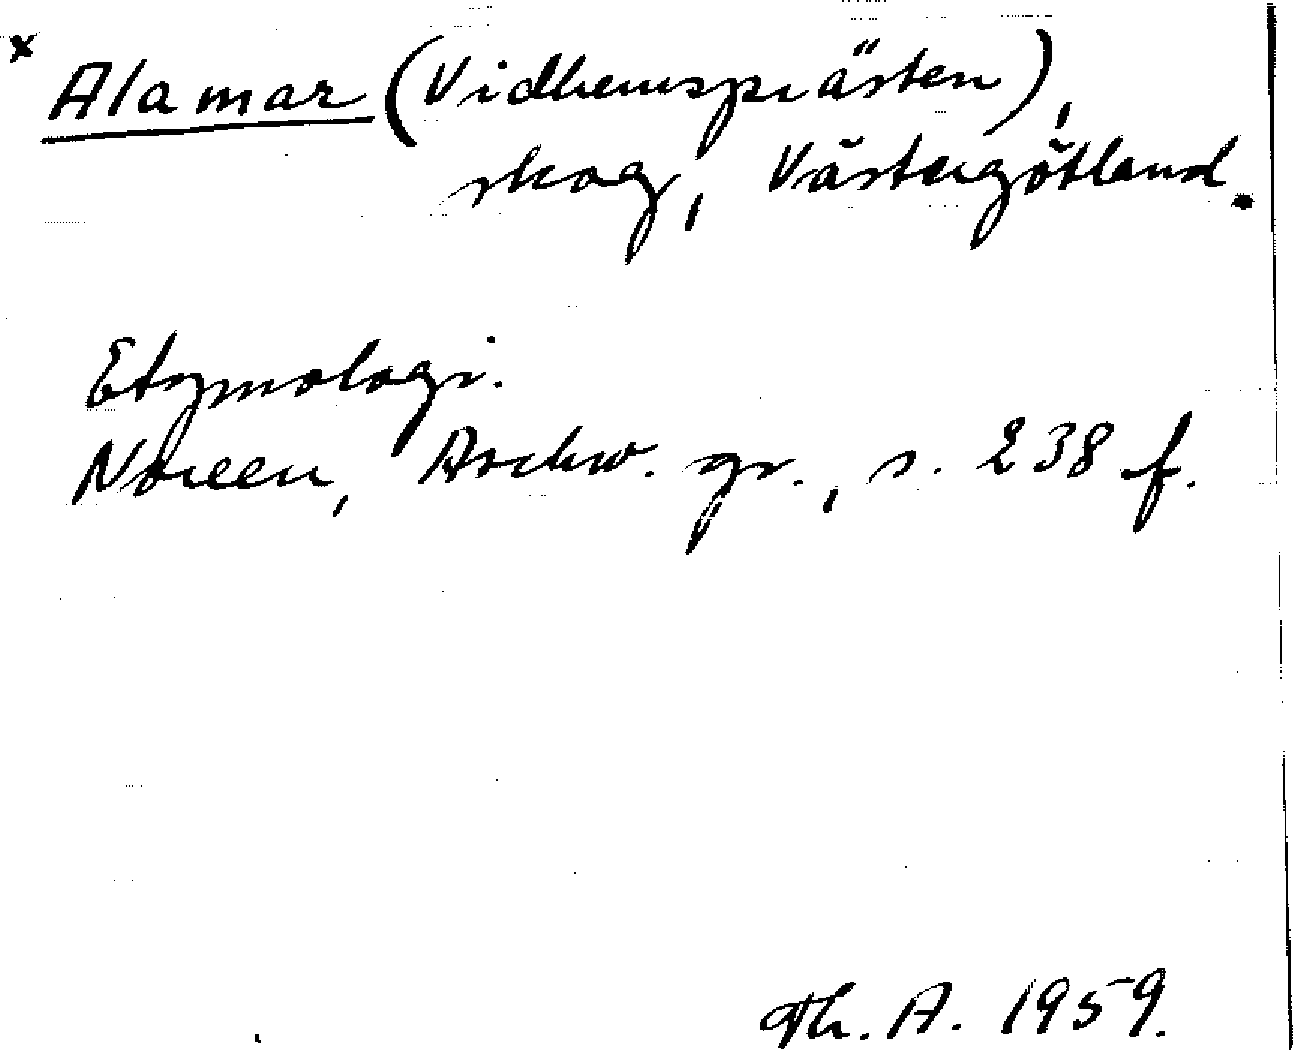 x Alamar (Vidhemsprästen),
skog, Västergötland.
Etymologi.
Noreen, Aschw. gr., s. 238 f.
Th. A. 1959.